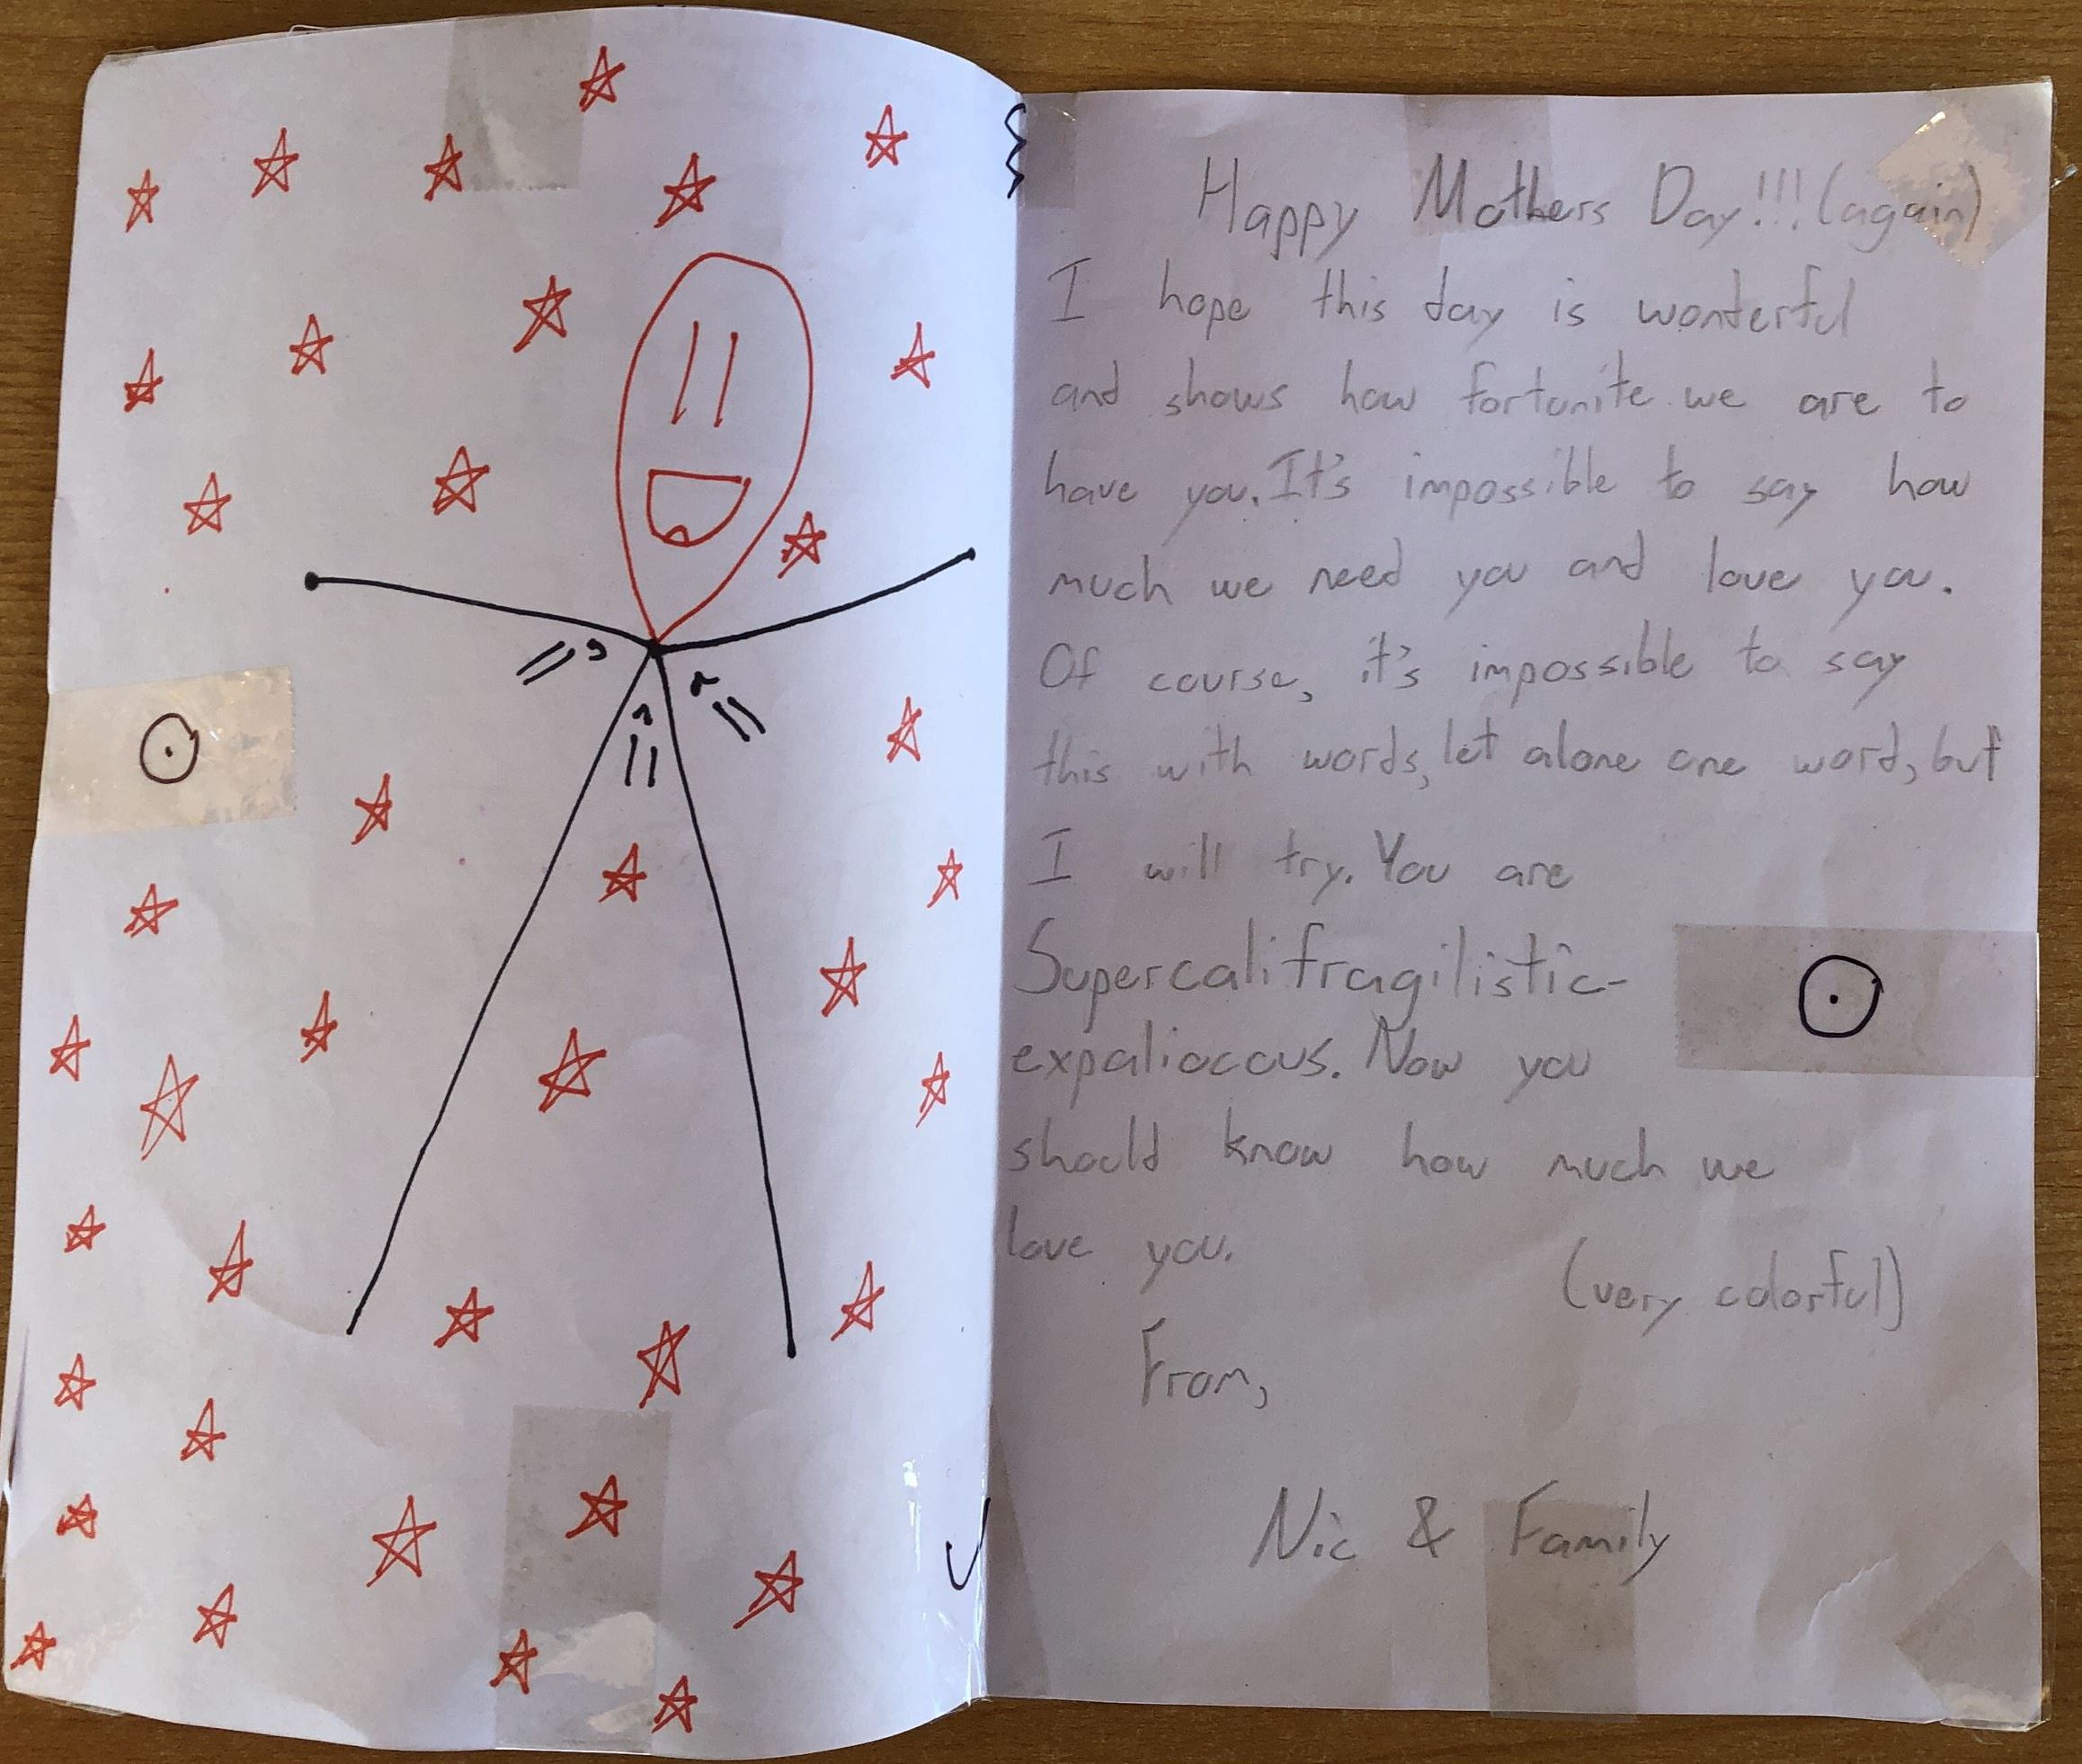 Happy Mothers Day!!!(again)
I hope this day is wonderful
and shows how fortunite we are to
have you. It's impossible to say how
much we need you and love you.
Of course, it's impossible to say
this with words, let alone one word, but
I will try. You are
Supercalifragilistic-
expalioccus. Now you
should know how much we
love you.
(very colorful)
From,
Nic & Family